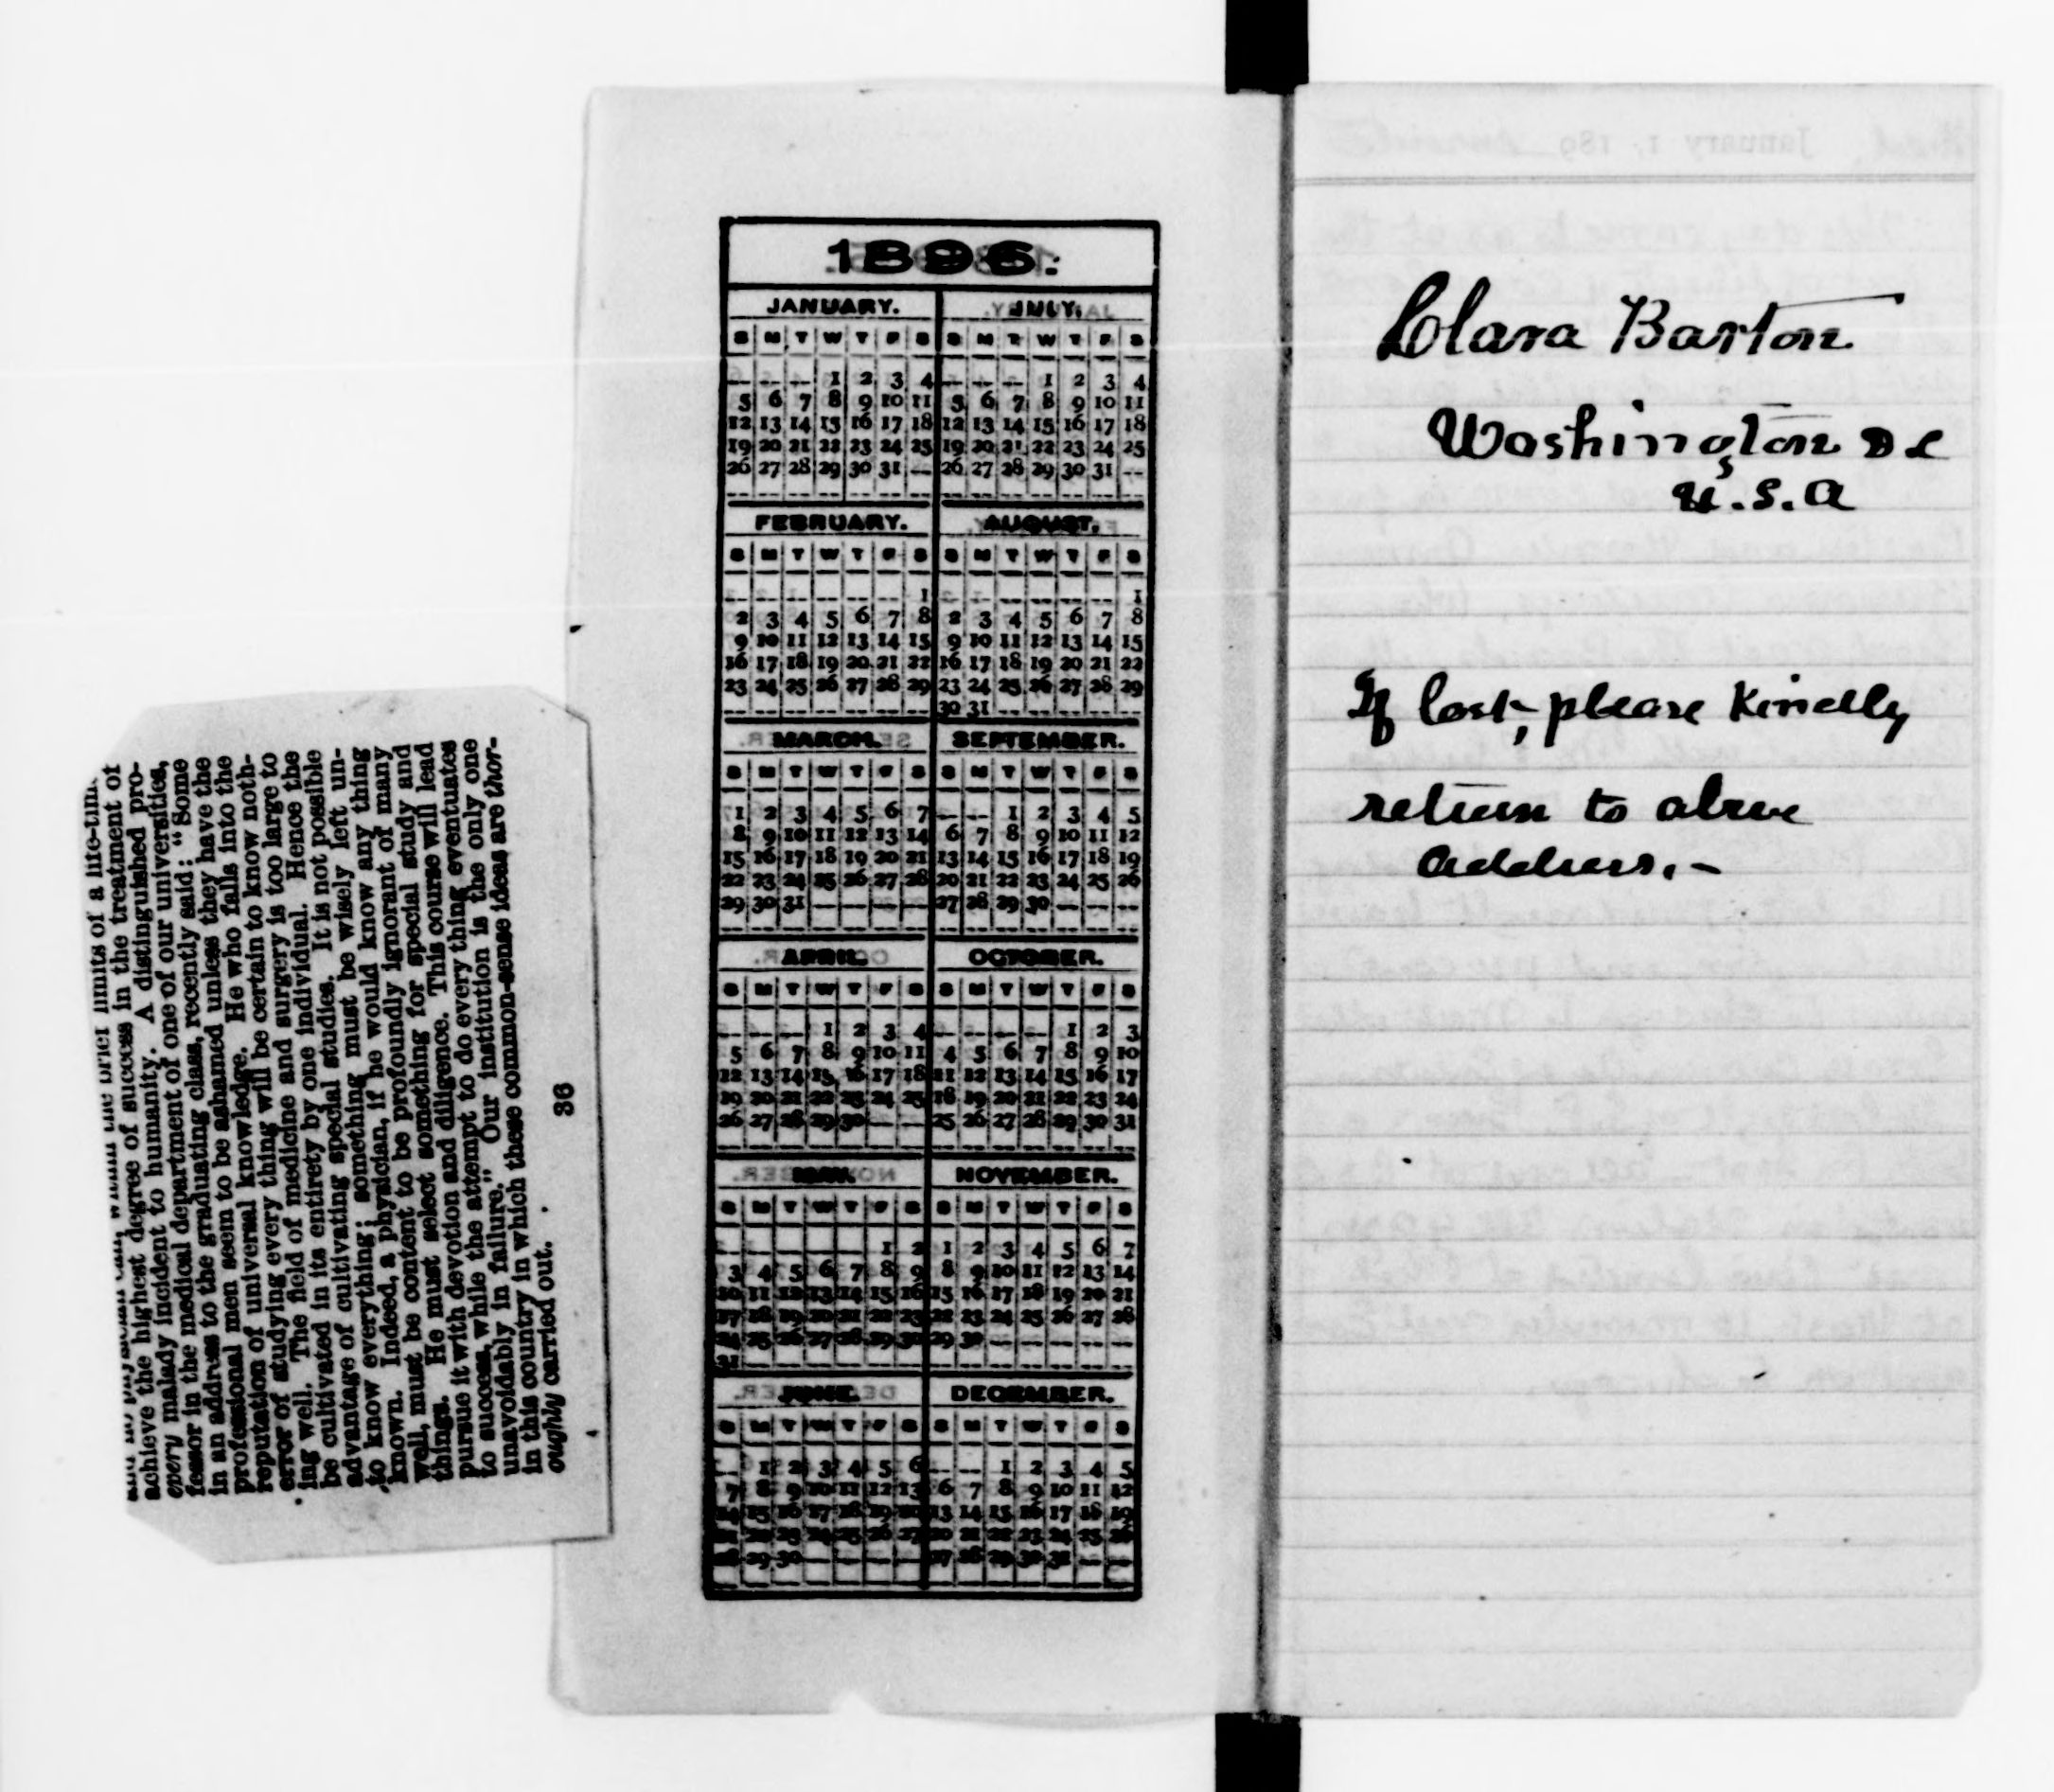 within the brief limits of a life-time
achieve the highest degree of success in the treatment of
every malady incident to humanity. A distinguished pro-
fessor in the medical department of one of our universities,
in an address to the graduating class, recently said: "Some
professional men seem to be ashamed unless they have the
reputation of universal knowledge. He who falls into the
error of studying every thing will be certain to know noth-
ing well. The field of medicine and surgery is too large to
be cultivated in its entirety by one individual. Hence the
advantage of cultivating special studies. It is not possible
to know everything; something must be wisely left un-
known. Indeed, a physician, if he would know any thing
well, must be content to be profoundly ignorant of many
things. He must select something for special study and
pursue it with devotion and diligence. This course will lead
to success, while the attempt to do every thing eventuates
unavoidably in failure." Our institution is the only one
in this country in which these common-sense ideas are thor-
oughly carried out.
36
1896.
JANUARY.
S M T W T F S
-- -- -- 1 2 3 4
5 6 7 8 9 10 11
12 13 14 15 16 17 18
19 20 21 22 23 24 25
26 27 28 29 30 31 --
FEBRUARY.
S M T W T F S
-- -- -- -- -- -- 1
2 3 4 5 6 7 8
9 10 11 12 13 14 15
16 17 18 19 20 21 22
23 24 25 26 27 28 29
MARCH.
S M T W T F S
1 2 3 4 5 6 7
8 9 10 11 12 13 14
15 16 17 18 19 20 21
22 23 24 25 26 27 28
29 30 31 -- -- -- --
APRIL.
S M T W T F S
-- -- -- 1 2 3 4
5 6 7 8 9 10 11
12 13 14 15 16 17 18
19 20 21 22 23 24 25
26 27 28 29 30 -- --
MAY.
S M T W T F S
-- -- -- -- -- 1 2
3 4 5 6 7 8 9
10 11 12 13 14 15 16
17 18 19 20 21 22 23
24 25 26 27 28 29 30
31 -- -- -- -- -- --
JUNE.
S M T W T F S
-- 1 2 3 4 5 6
7 8 9 10 11 12 13
14 15 16 17 18 19 20
21 22 23 24 25 26 27
28 29 30 -- -- -- --
JULY.
S M T W T F S
-- -- -- 1 2 3 4
5 6 7 8 9 10 11
12 13 14 15 16 17 18
19 20 21 22 23 24 25
26 27 28 29 30 31 --
AUGUST.
S M T W T F S
-- -- -- -- -- -- 1
2 3 4 5 6 7 8
9 10 11 12 13 14 15
16 17 18 19 20 21 22
23 24 25 26 27 28 29
30 31 -- -- -- -- --
SEPTEMBER.
S M T W T F S
-- -- 1 2 3 4 5
6 7 8 9 10 11 12
13 14 15 16 17 18 19
20 21 22 23 24 25 26
27 28 29 30 -- -- --
OCTOBER.
S M T W T F S
-- -- -- -- 1 2 3
4 5 6 7 8 9 10
11 12 13 14 15 16 17
18 19 20 21 22 23 24
25 26 27 28 29 30 31
NOVEMBER.
S M T W T F S
1 2 3 4 5 6 7
8 9 10 11 12 13 14
15 16 17 18 19 20 21
22 23 24 25 26 27 28
29 30 -- -- -- -- --
DECEMBER.
S M T W T F S
-- -- 1 2 3 4 5
6 7 8 9 10 11 12
13 14 15 16 17 18 19
20 21 22 23 24 25 26
27 28 29 30 31 -- --
Clara Barton
Washington D C
U.S.A
If lost, please Kindly
return to above
address.-